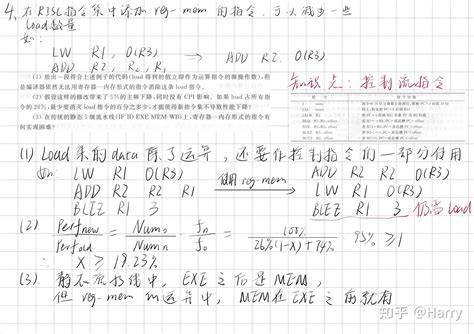 4. 在RISC指令系中添加 reg-mem 的指令,可以减少一些
load数量
如:
LW R1, 0(R3) → ADD R2, 0(R3)
ADD R2, R2, R1
(1) 给出一段符合上述例子的代码(load 得到的值立即作为运算指令的源操作数),但
是编译器依然无法用寄存器-内存形式的指令消除这条 load 指令。
(2) 假设这样的修改带来了5%的主频下降,同时没有 CPI 影响。如果 load 占所有指
令的 26%,最少要消灭 load 指令的百分之多少,才能使得新指令集不导致性能下降?
(3) 在传统的静态5级流水线(IF ID EXE MEM WB)上,寄存器-内存形式的指令有
何实现困难?
知识点:控制流指令
(1) Load 来的data除了运算,还要作控制指令的一部分使用
如: LW R1 0(R3) ADD R2 R2 0(R3)
ADD R2 R2 R1 使用reg-mem → LW R1 0(R3)
BLEZ R1 3 BLEZ R1 3 仍需load
(2) Perfnew / Perfold = Numo / Numn · fn / fo = 100% / 26%(1-X)+74% · 95% ≥ 1
∴ X ≥ 19.23%
(3) 静态流水线中,EXE 之后是MEM,
但 reg-mem 运算中,MEM在EXE之前就有
知乎 @Harry